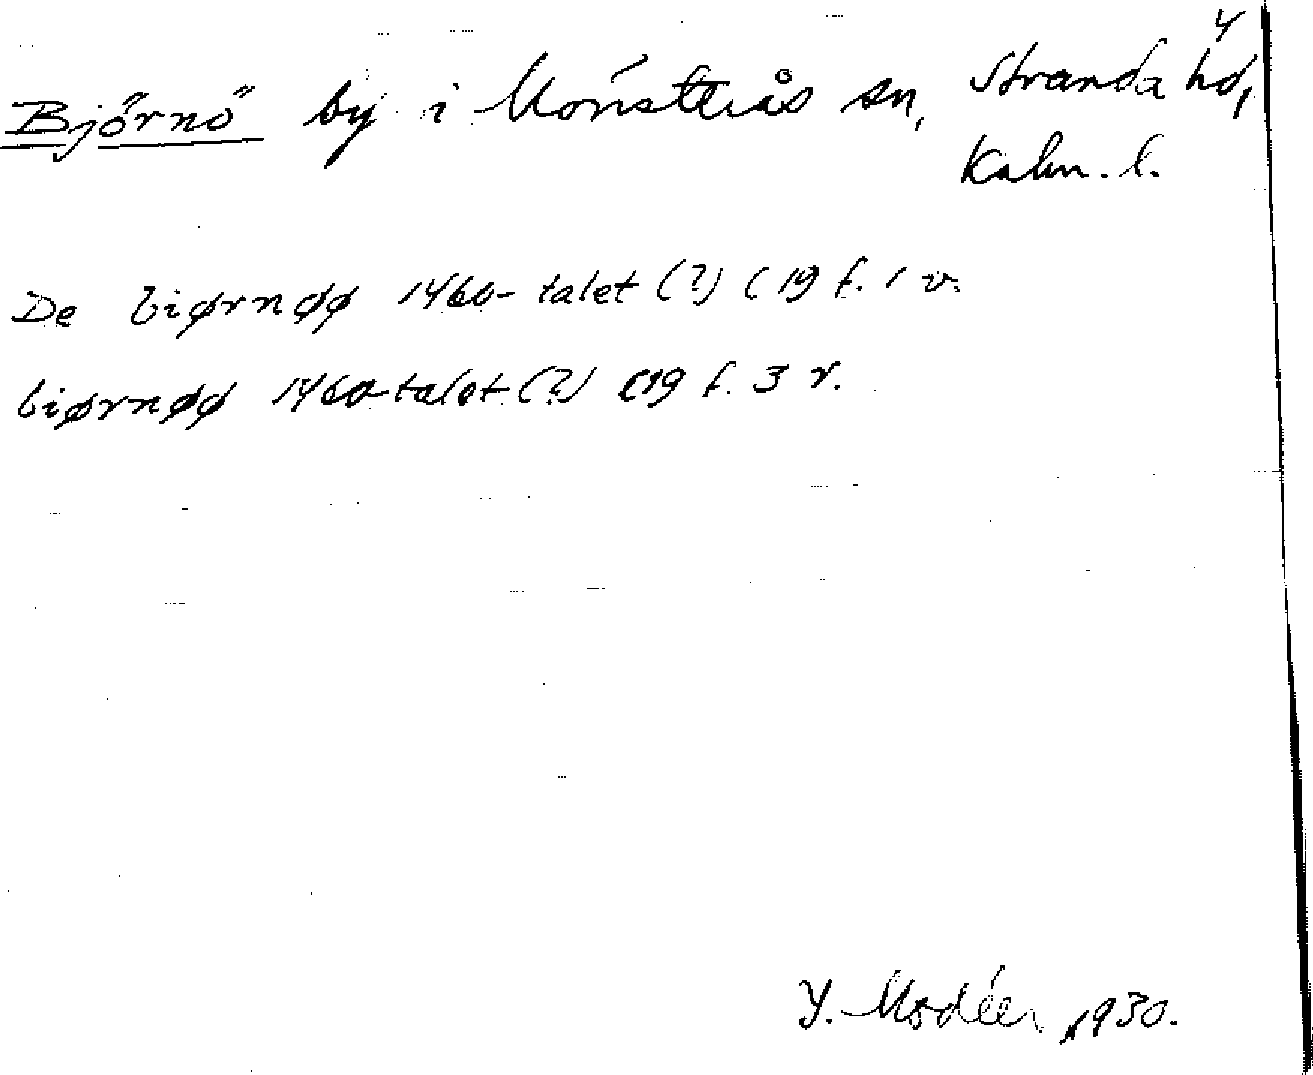 4
Björnö by i Mönsterås sn, Stranda hd,
Kalm. l.
De biørnøø 1460-talet (?) C 19 f. 1 v.
biørnøø 1460-talet (?) C 19 f. 3 r.
I. Modéer 1930.